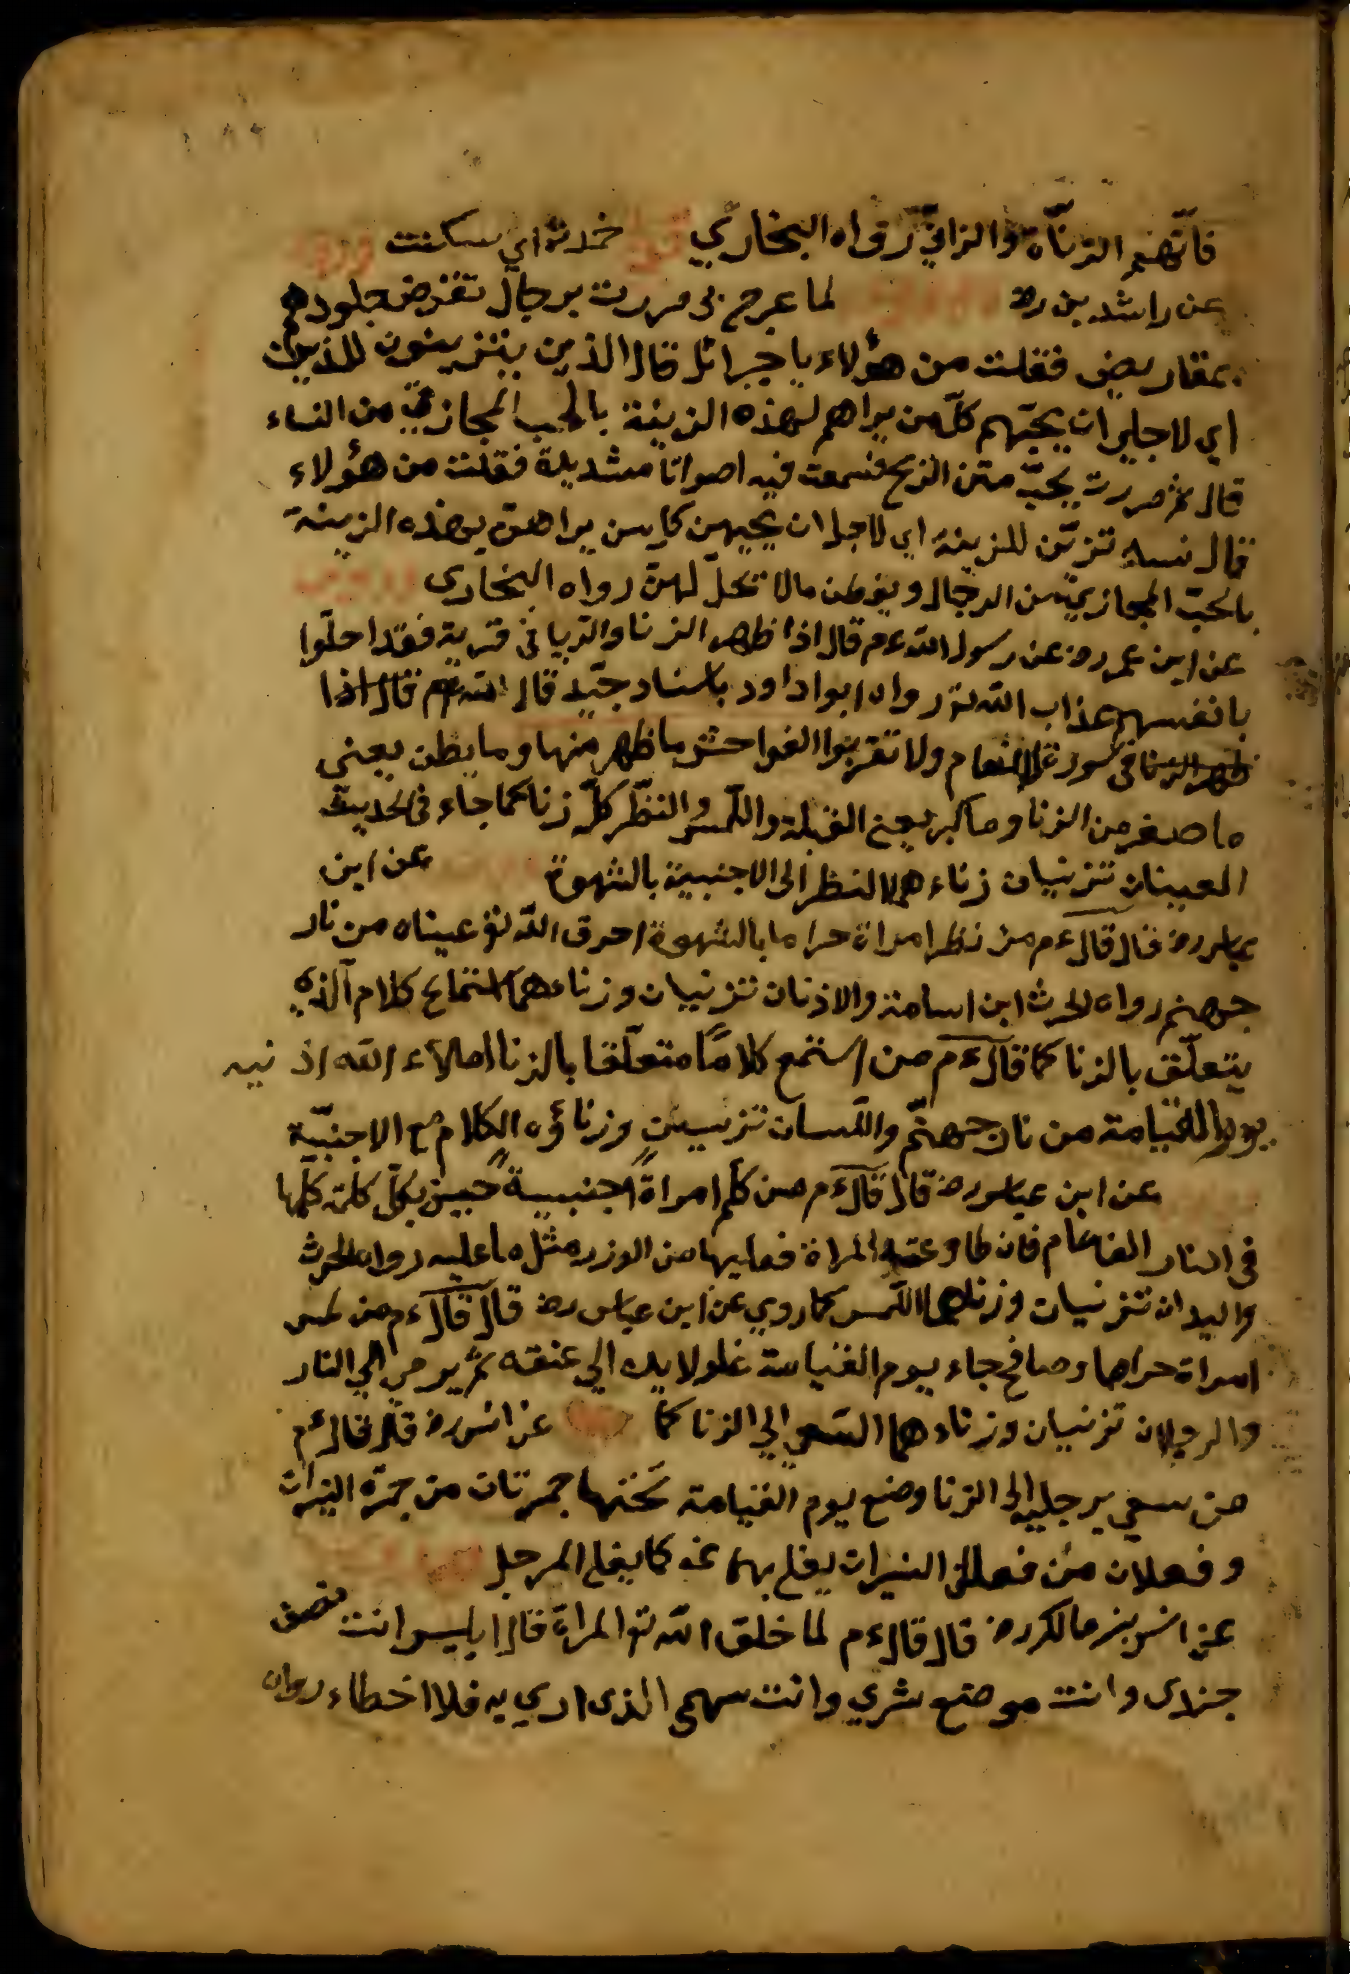 فانهم الزناة والزاني رواه البخاري خمدت اي سكنت
عن راشد بن رض لما عرج بي مررت برجال تقرض جلودهم
بمقاريض فقلت من هؤلاء يا جبرائل قال الذين يتزينون للزينة
اي لاجل ان يحبهم كل من يراهم لهذه الزينة بالحب المجازي من النساء
قال ثم مررت بجب منتن الريح فسمعت فيه اصواتا شديدة فقلت من هؤلاء
قال نساء تزين للزينة اي لاجل ان يحبهن كل من يراهن بهذه الزينة
بالحب المجازي من الرجال ويفعلن مالا تحل لهن رواه البخاري
عن ابن عمر رض عن رسول الله ءم قال اذا ظهر الزنا والربا في قرية فقد احلوا
بانفسهم عذاب الله تع رواه ابوا داود باسناد جيد قال الله قال اذا
ظهر الزنا في سورة الانعام ولا تقربوا الفواحش ما ظهر منها وما بطن يعني
ما صغر من الزنا وما كبر يعني القبلة واللمس والنظر كل زنا كما جاء في الحديث
العينان تزنيان زناءهما النظر الى الاجنبية بالشهوة عن ابن
عباس رض قال قال ءم من نظر امراة حراما بالشهوة احرق الله تع عيناه من نار
جهنم رواه الحرث ابن اسامة والاذنان تزنيان وزناءهما استماع كلام الذي
يتعلق بالزنا كما قال ءم من استمع كلاما متعلقا بالزنا املاء الله اذنيه
يوم القيامة من نار جهنم واللسان تزنيان وزناؤه الكلام مع الاجنبية
عن ابن عباس رض قال قال ءم من كلم امراة اجنبية حبس بكل كلمة كلمها
في النار الف عام فان طاوعته المراة فعليها من الوزر مثل ما عليه رواه الحرث
واليدان تزنيان وزناهما اللمس كما روي عن ابن عباس رض قال قال ءم من لمس
امراة حراما وصافح جاء يوم القيامة غلولا يده الي عنقه ثم يرمي الي النار
والرجلان تزنيان وزناءهما السعي الي الزنا كما عن انس رض قال قال ءم
من سعي برجليه الى الزنا وضع يوم القيامة تحتها جمرتان من جمرة النيران
وفعلان من فعلي النيران يغلي بهما مخه كما يغلي المرجل
عن انس بن مالك رض قال قال ءم لما خلق الله تع المراة قال ابليس انت نصف
جندي وانت موضع شري وانت سهمي الذي ارمي به فلا اخطاء رواه